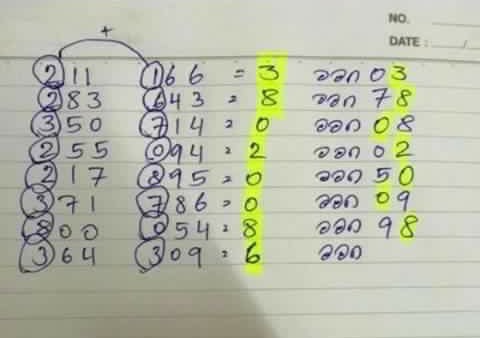 NO.
DATE :
+
211 166 = 3 ออก 03
283 643 = 8 ออก 78
350 714 = 0 ออก 08
255 094 = 2 ออก 02
217 895 = 0 ออก 50
371 786 = 0 ออก 09
800 054 = 8 ออก 98
364 309 = 6 ออก